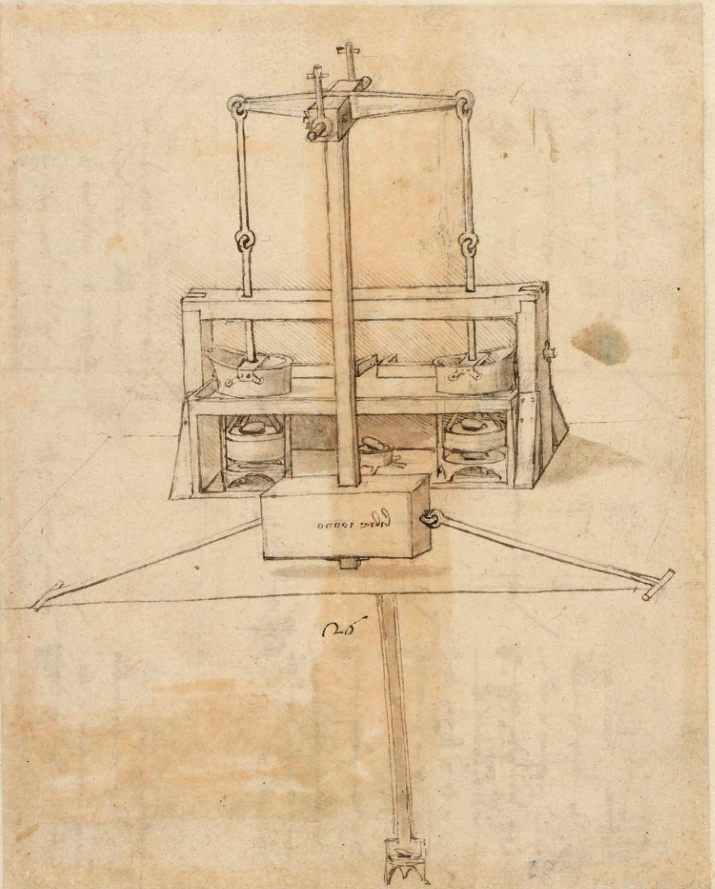 libre 10000
26